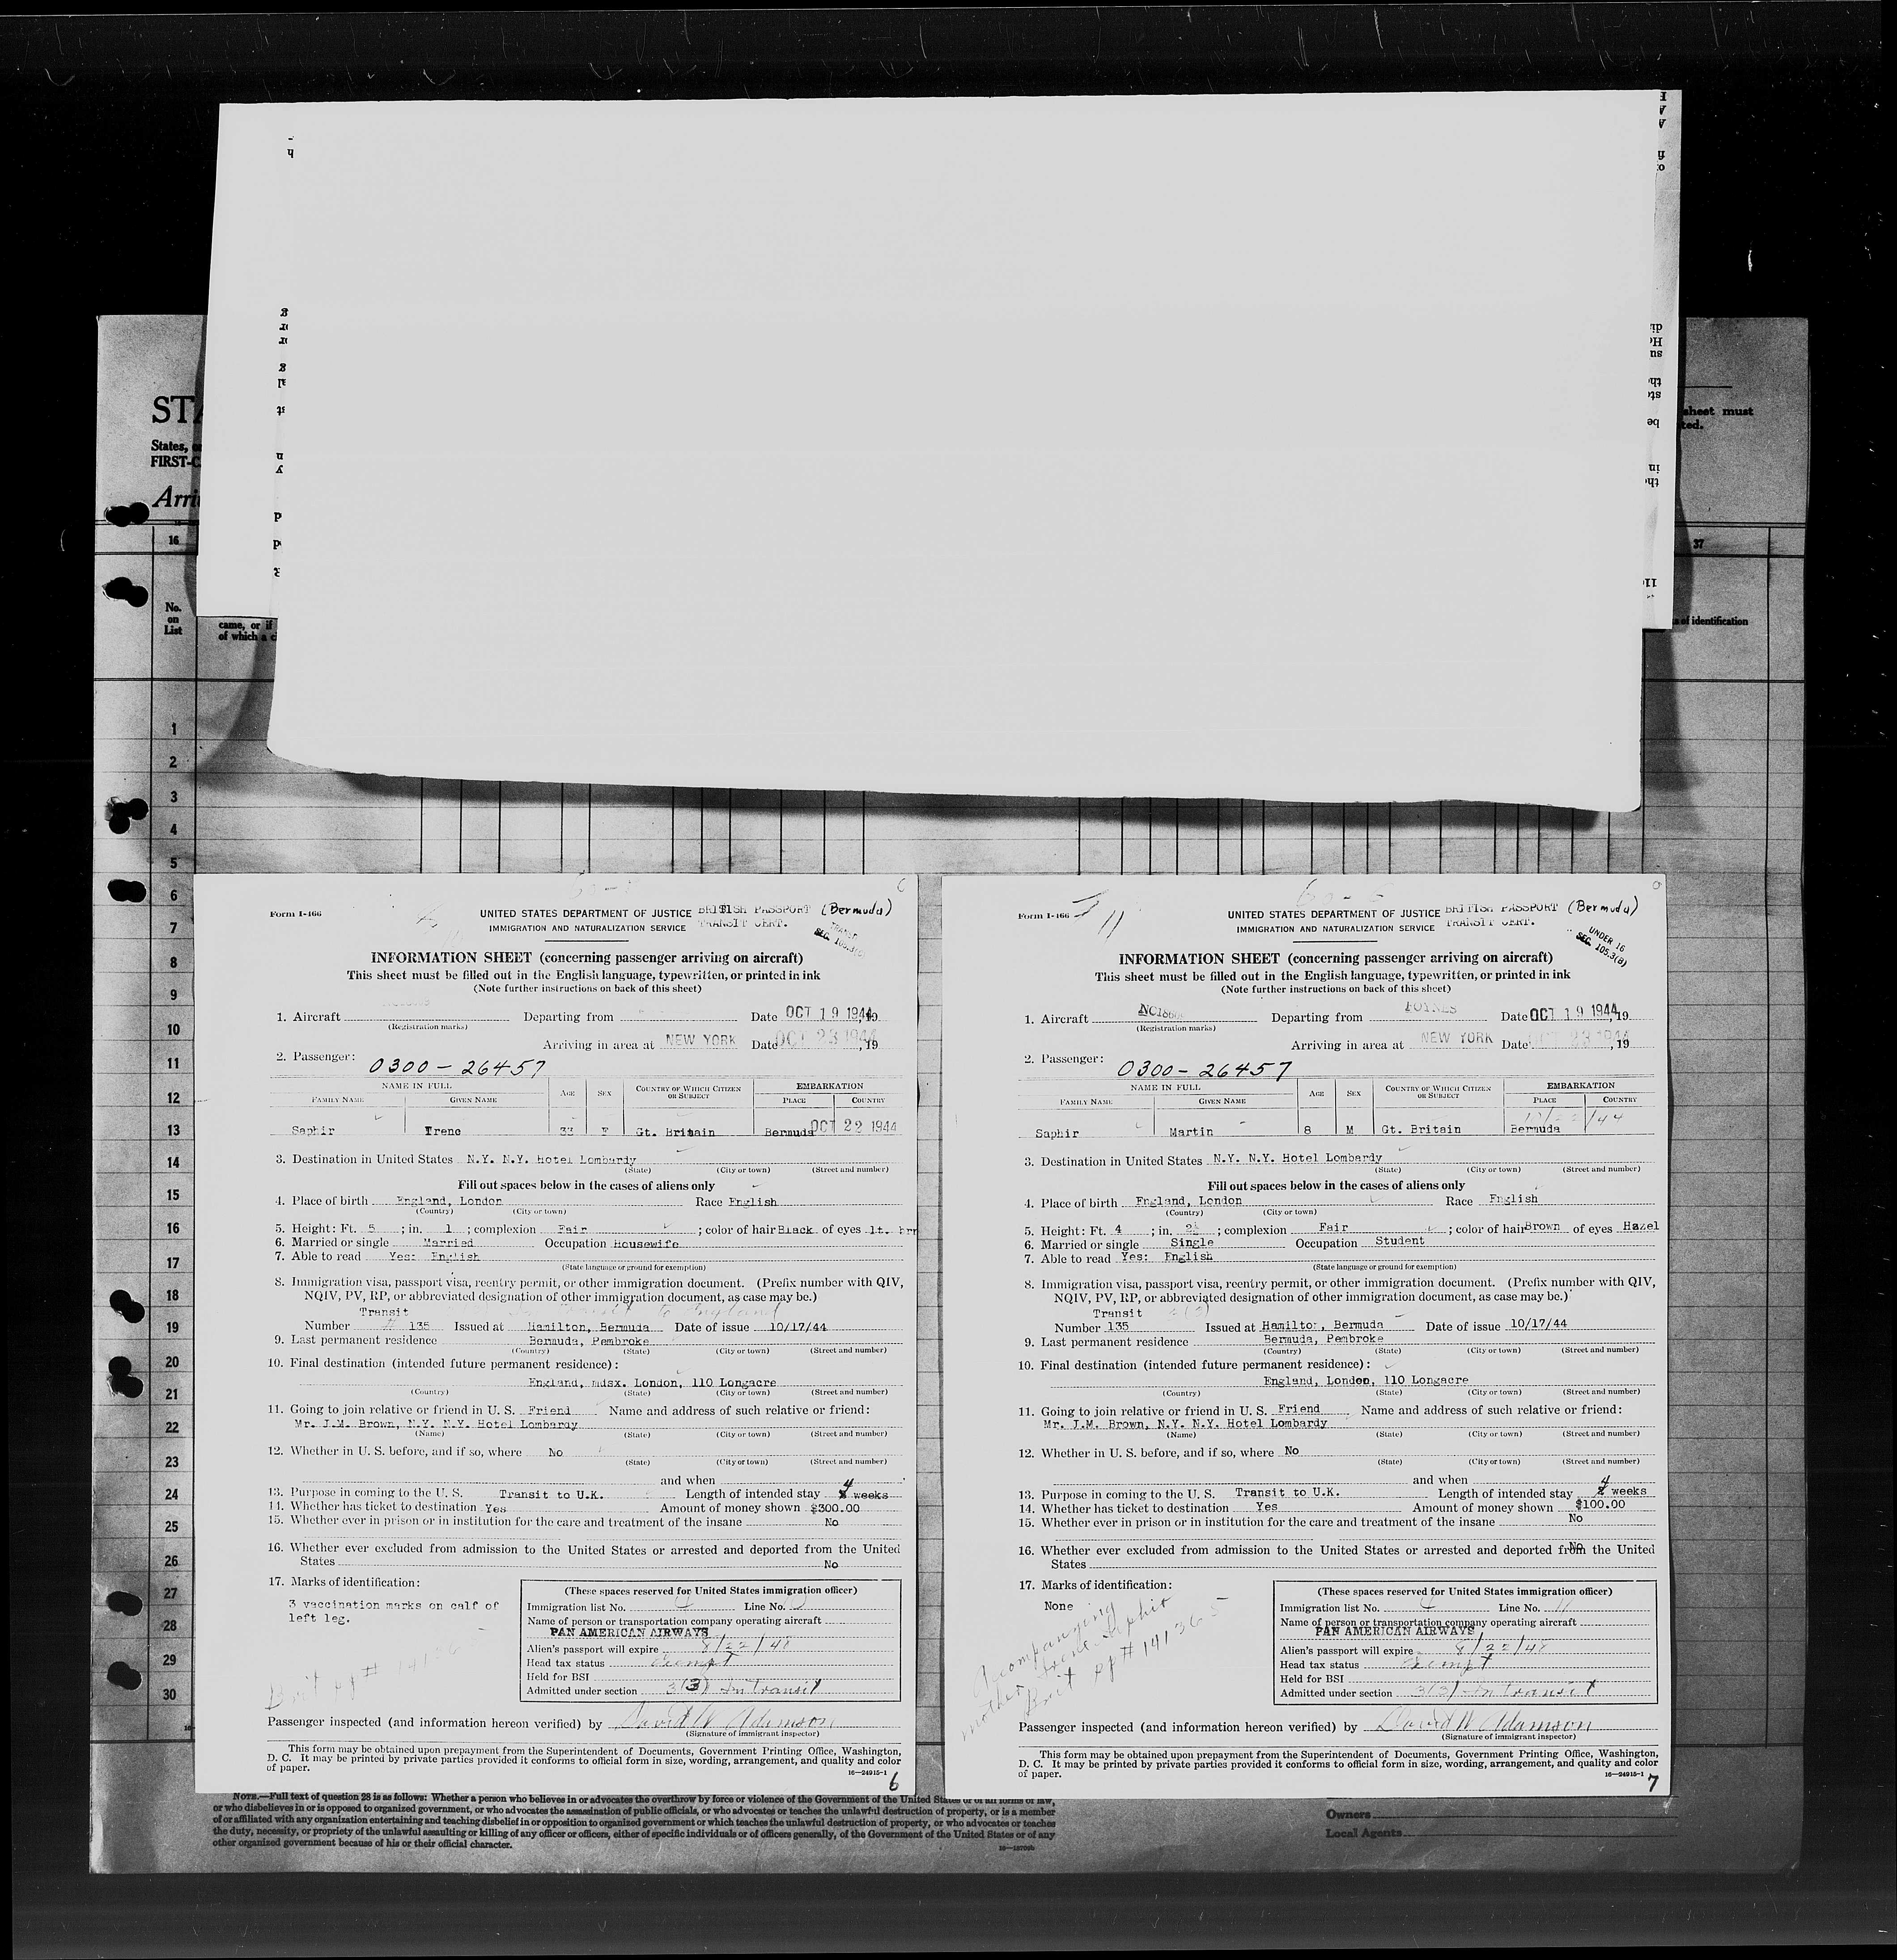 STA
States, or
FIRST-C
Arri
sheet must
ted.
16
37
No.
on
List
came, or if
of which a ci
s of identification
1
2
3
4
5
6
7
8
9
10
11
12
13
14
15
16
17
18
19
20
21
22
23
24
25
26
27
28
29
30
Form I-466
UNITED STATES DEPARTMENT OF JUSTICE BRITISH PASSPORT (Bermuda)
IMMIGRATION AND NATURALIZATION SERVICE TRANSIT CERT.
INFORMATION SHEET (concerning passenger arriving on aircraft)
This sheet must be filled out in the English language, typewritten, or printed in ink
(Note further instructions on back of this sheet)
1. Aircraft Departing from Date OCT 19 1944, 19
(Registration marks)
Arriving in area at NEW YORK Date OCT 23 1944, 19
2. Passenger: 0300-26457
NAME IN FULL AGE SEX COUNTRY OF WHICH CITIZEN OR SUBJECT EMBARKATION
FAMILY NAME GIVEN NAME PLACE COUNTRY
Saphir Irene 33 F Gt. Britain Bermuda OCT 22 1944
3. Destination in United States N.Y. N.Y. Hotel Lombardy
(State) (City or town) (Street and number)
Fill out spaces below in the cases of aliens only
4. Place of birth England, London Race English
(Country) (City or town)
5. Height: Ft. 5 ; in. 1 ; complexion Fair ; color of hair Black of eyes lt. brn
6. Married or single Married Occupation Housewife
7. Able to read Yes: English
(State language or ground for exemption)
8. Immigration visa, passport visa, reentry permit, or other immigration document. (Prefix number with QIV,
NQIV, PV, RP, or abbreviated designation of other immigration document, as case may be.)
Transit In Transit to England
Number # 135 Issued at Hamilton, Bermuda Date of issue 10/17/44
9. Last permanent residence Bermuda, Pembroke
(Country) (State) (City or town) (Street and number)
10. Final destination (intended future permanent residence):
England, mdsx. London, 110 Longacre
(Country) (State) (City or town) (Street and number)
11. Going to join relative or friend in U. S. Friend Name and address of such relative or friend:
Mr. J.M. Brown, N.Y. N.Y. Hotel Lombardy
(Name) (State) (City or town) (Street and number)
12. Whether in U. S. before, and if so, where No
(State) (City or town) (Street and number)
and when
13. Purpose in coming to the U. S. Transit to U.K. Length of intended stay 4 weeks
14. Whether has ticket to destination Yes Amount of money shown $300.00
15. Whether ever in prison or in institution for the care and treatment of the insane No
16. Whether ever excluded from admission to the United States or arrested and deported from the United
States No
17. Marks of identification:
3 vaccination marks on calf of
left leg.
Brit pp#
(These spaces reserved for United States immigration officer)
Immigration list No. 4 Line No. 10
Name of person or transportation company operating aircraft
PAN AMERICAN AIRWAYS
Alien's passport will expire 8/22/48
Head tax status Exempt
Held for BSI
Admitted under section 3(3) In Transit
Passenger inspected (and information hereon verified) by David W Adamson
(Signature of immigrant inspector)
This form may be obtained upon prepayment from the Superintendent of Documents, Government Printing Office, Washington,
D. C. It may be printed by private parties provided it conforms to official form in size, wording, arrangement, and quality and color
of paper. 16—24915-1
6
Form I-466
11
UNITED STATES DEPARTMENT OF JUSTICE BRITISH PASSPORT (Bermuda)
IMMIGRATION AND NATURALIZATION SERVICE TRANSIT CERT.
UNDER 16
SEC. 105.3(B)
INFORMATION SHEET (concerning passenger arriving on aircraft)
This sheet must be filled out in the English language, typewritten, or printed in ink
(Note further instructions on back of this sheet)
1. Aircraft Departing from FOYNES Date OCT 19 1944, 19
(Registration marks)
Arriving in area at NEW YORK Date OCT 23 1944, 19
2. Passenger: 0300-26457
NAME IN FULL AGE SEX COUNTRY OF WHICH CITIZEN OR SUBJECT EMBARKATION
FAMILY NAME GIVEN NAME PLACE COUNTRY
Saphir Martin 8 M Gt. Britain Bermuda
3. Destination in United States N.Y. N.Y. Hotel Lombardy
(State) (City or town) (Street and number)
Fill out spaces below in the cases of aliens only
4. Place of birth England, London Race English
(Country) (City or town)
5. Height: Ft. 4 ; in. 2½ ; complexion Fair ; color of hair Brown of eyes Hazel
6. Married or single Single Occupation Student
7. Able to read Yes: English
(State language or ground for exemption)
8. Immigration visa, passport visa, reentry permit, or other immigration document. (Prefix number with QIV,
NQIV, PV, RP, or abbreviated designation of other immigration document, as case may be.)
Transit 3(3)
Number 135 Issued at Hamilton, Bermuda Date of issue 10/17/44
9. Last permanent residence Bermuda, Pembroke
(Country) (State) (City or town) (Street and number)
10. Final destination (intended future permanent residence):
England, London, 110 Longacre
(Country) (State) (City or town) (Street and number)
11. Going to join relative or friend in U. S. Friend Name and address of such relative or friend:
Mr. J.M. Brown, N.Y. N.Y. Hotel Lombardy
(Name) (State) (City or town) (Street and number)
12. Whether in U. S. before, and if so, where No
(State) (City or town) (Street and number)
and when
13. Purpose in coming to the U. S. Transit to U.K. Length of intended stay 4 weeks
14. Whether has ticket to destination Yes Amount of money shown $100.00
15. Whether ever in prison or in institution for the care and treatment of the insane No
16. Whether ever excluded from admission to the United States or arrested and deported from the United
States No
17. Marks of identification:
None
Accompanying
mother Irene Saphir
Brit pp# 141365
(These spaces reserved for United States immigration officer)
Immigration list No. 4 Line No. 11
Name of person or transportation company operating aircraft
PAN AMERICAN AIRWAYS
Alien's passport will expire 8/22/48
Head tax status Exempt
Held for BSI
Admitted under section 3(3) In Transit
Passenger inspected (and information hereon verified) by David W Adamson
(Signature of immigrant inspector)
This form may be obtained upon prepayment from the Superintendent of Documents, Government Printing Office, Washington,
D. C. It may be printed by private parties provided it conforms to official form in size, wording, arrangement, and quality and color
of paper. 16—24915-1
7
NOTE.—Full text of question 28 is as follows: Whether a person who believes in or advocates the overthrow by force or violence of the Government of the United States or of all forms of law,
or who disbelieves in or is opposed to organized government, or who advocates the assassination of public officials, or who advocates or teaches the unlawful destruction of property, or is a member
of or affiliated with any organization entertaining and teaching disbelief in or opposition to organized government or which teaches the unlawful destruction of property, or who advocates or teaches
the duty, necessity, or propriety of the unlawful assaulting or killing of any officer or officers, either of specific individuals or of officers generally, of the Government of the United States or of any
other organized government because of his or their official character.
Owners
Local Agents